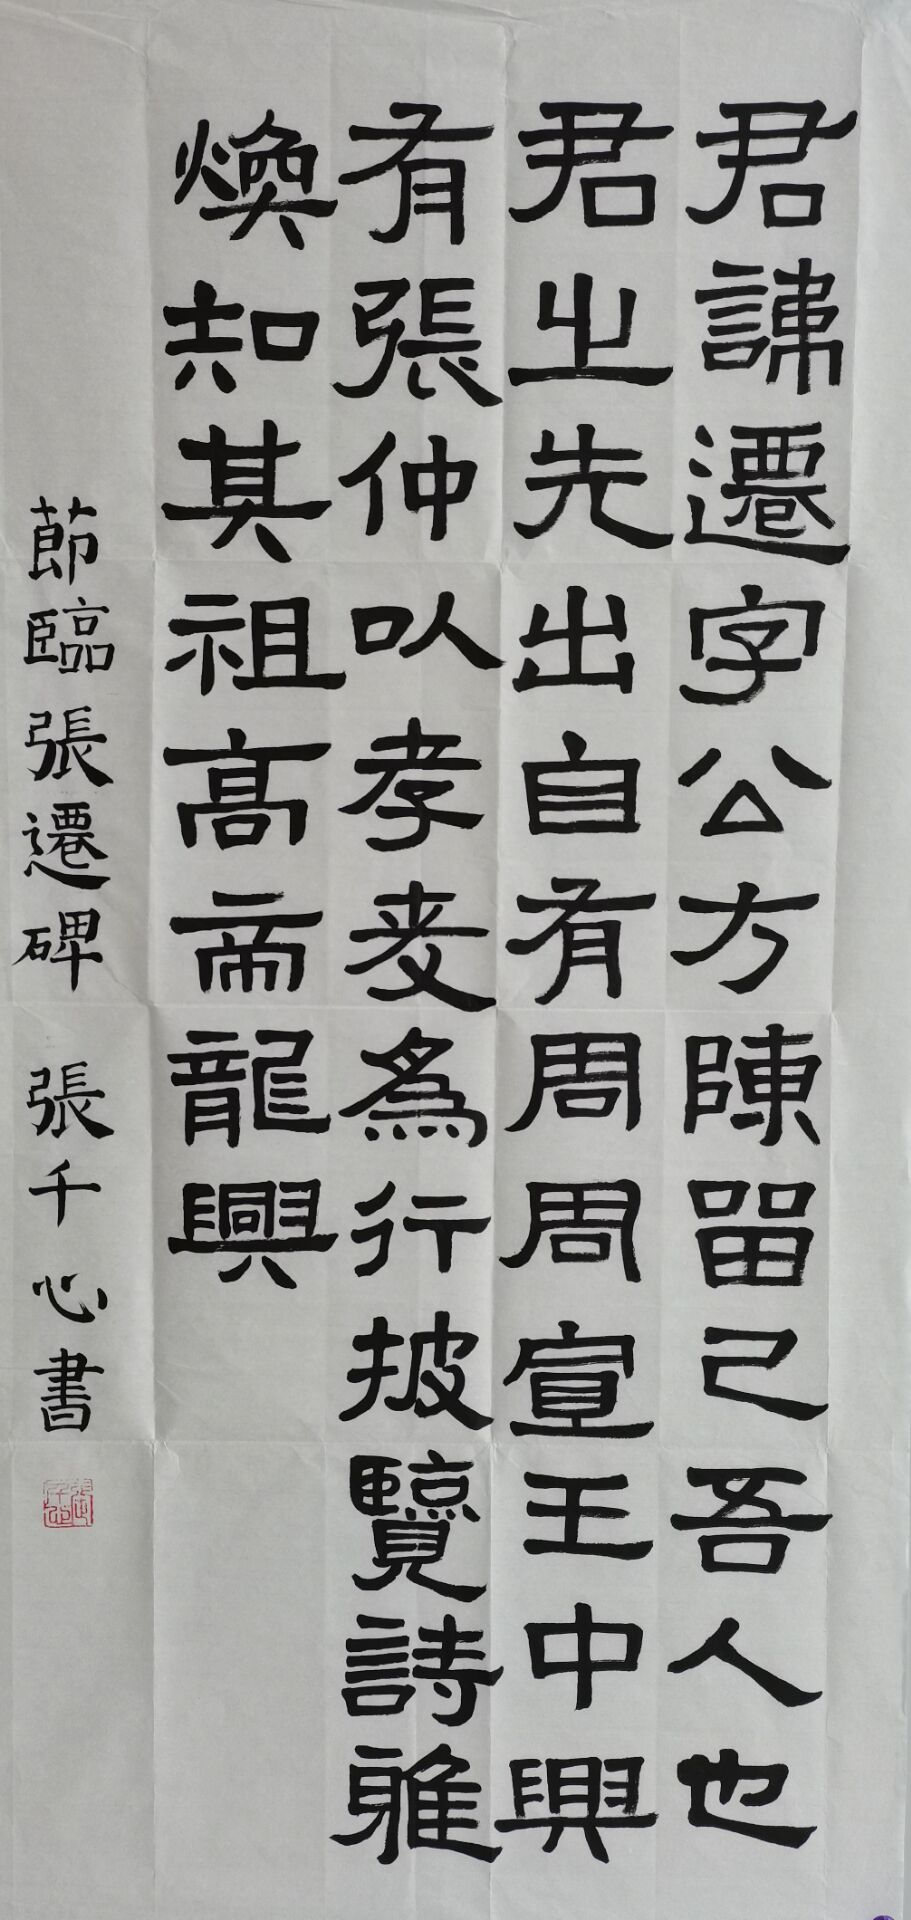 君諱遷字公方陳留己吾人也
君之先出自有周周宣王中興
有張仲以孝友為行披覽詩雅
煥知其祖高帝龍興
節臨張遷碑 張千心書